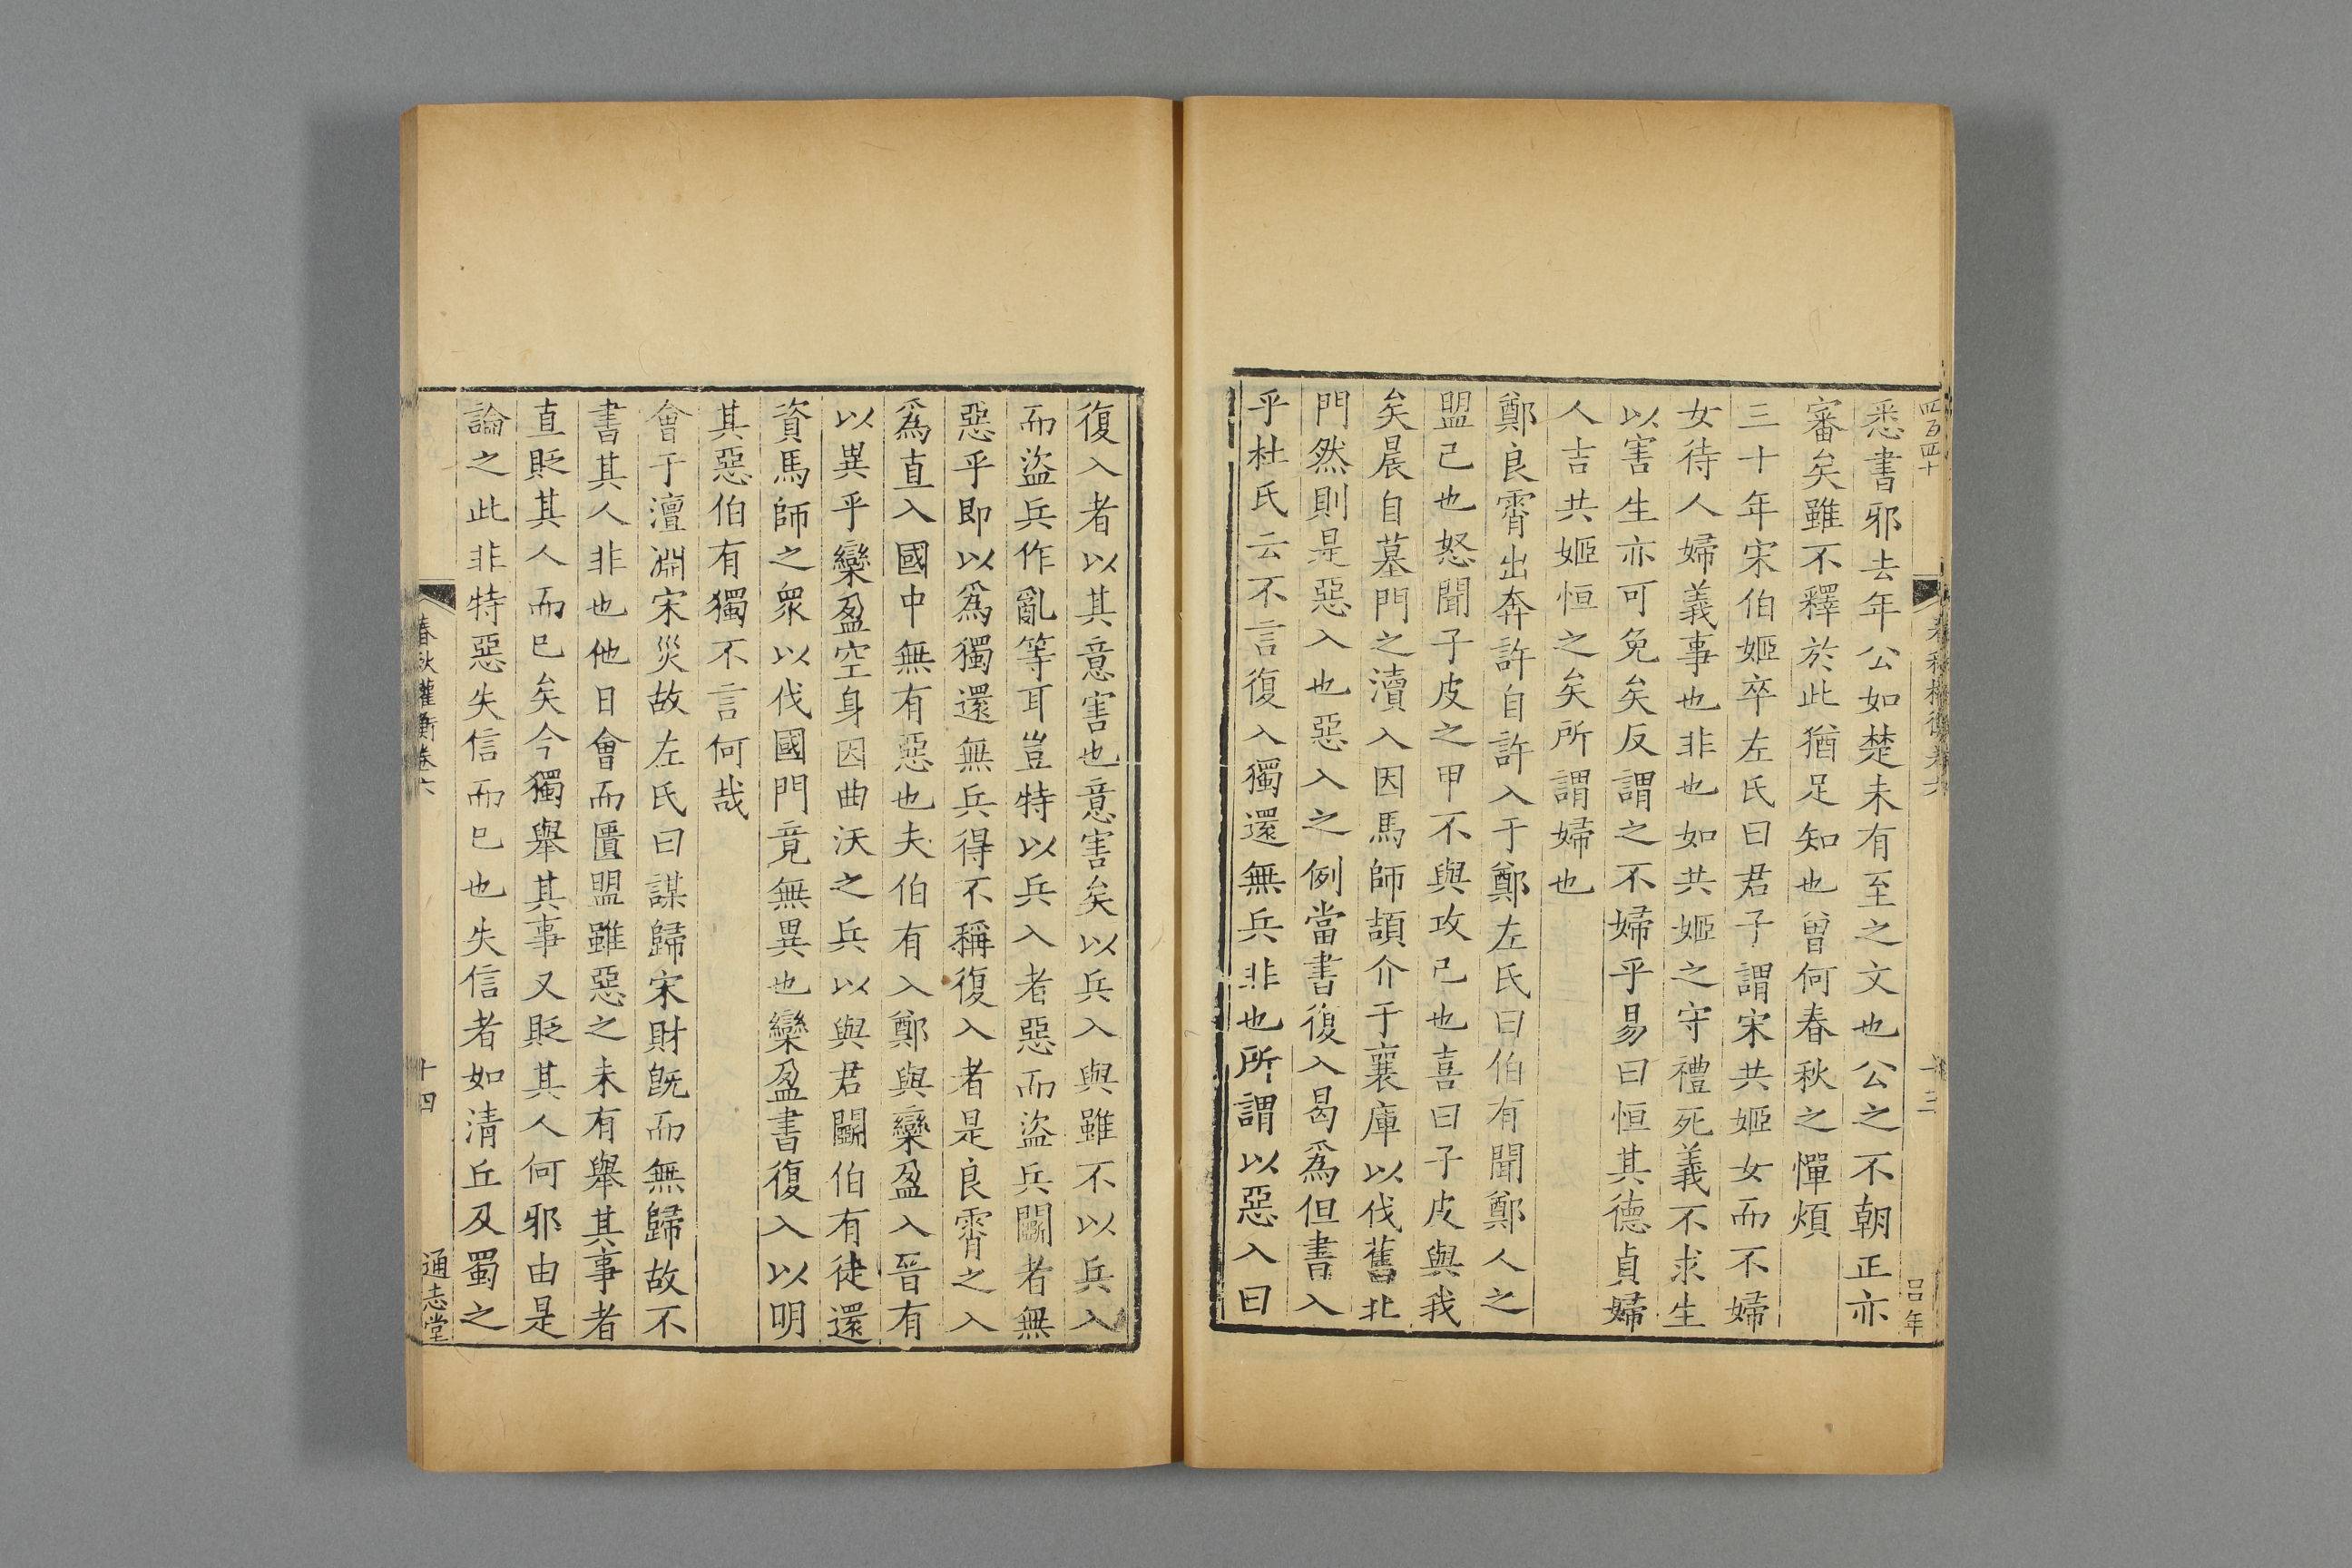 四百四十
春秋權衡卷六
十三
呂年
悉書邪去年公如楚未有至之文也公之不朝正亦
審矣雖不釋於此猶足知也曾何春秋之憚煩
三十年宋伯姬卒左氏曰君子謂宋共姬女而不婦
女待人婦義事也非也如共姬之守禮死義不求生
以害生亦可免矣反謂之不婦乎易曰恒其德貞婦
人吉共姬恒之矣所謂婦也
鄭良霄出奔許自許入于鄭左氏曰伯有聞鄭人之
盟己也怒聞子皮之甲不與攻己也喜曰子皮與我
矣晨自墓門之瀆入因馬師頡介于襄庫以伐舊北
門然則是惡入也惡入之例當書復入曷爲但書入
乎杜氏云不言復入獨還無兵非也所謂以惡入曰
復入者以其意害也意害矣以兵入與雖不以兵入
而盜兵作亂等耳豈特以兵入者惡而盜兵鬭者無
惡乎即以爲獨還無兵得不稱復入者是良霄之入
爲直入國中無有惡也夫伯有入鄭與欒盈入晉有
以異乎欒盈空身因曲沃之兵以與君鬭伯有徒還
資馬師之衆以伐國門竟無異也欒盈書復入以明
其惡伯有獨不言何哉
會于澶淵宋災故左氏曰謀歸宋財旣而無歸故不
書其人非也他日會而匱盟雖惡之未有舉其事者
直貶其人而已矣今獨舉其事又貶其人何邪由是
論之此非特惡失信而已也失信者如清丘及蜀之
春秋權衡卷六
十四
通志堂